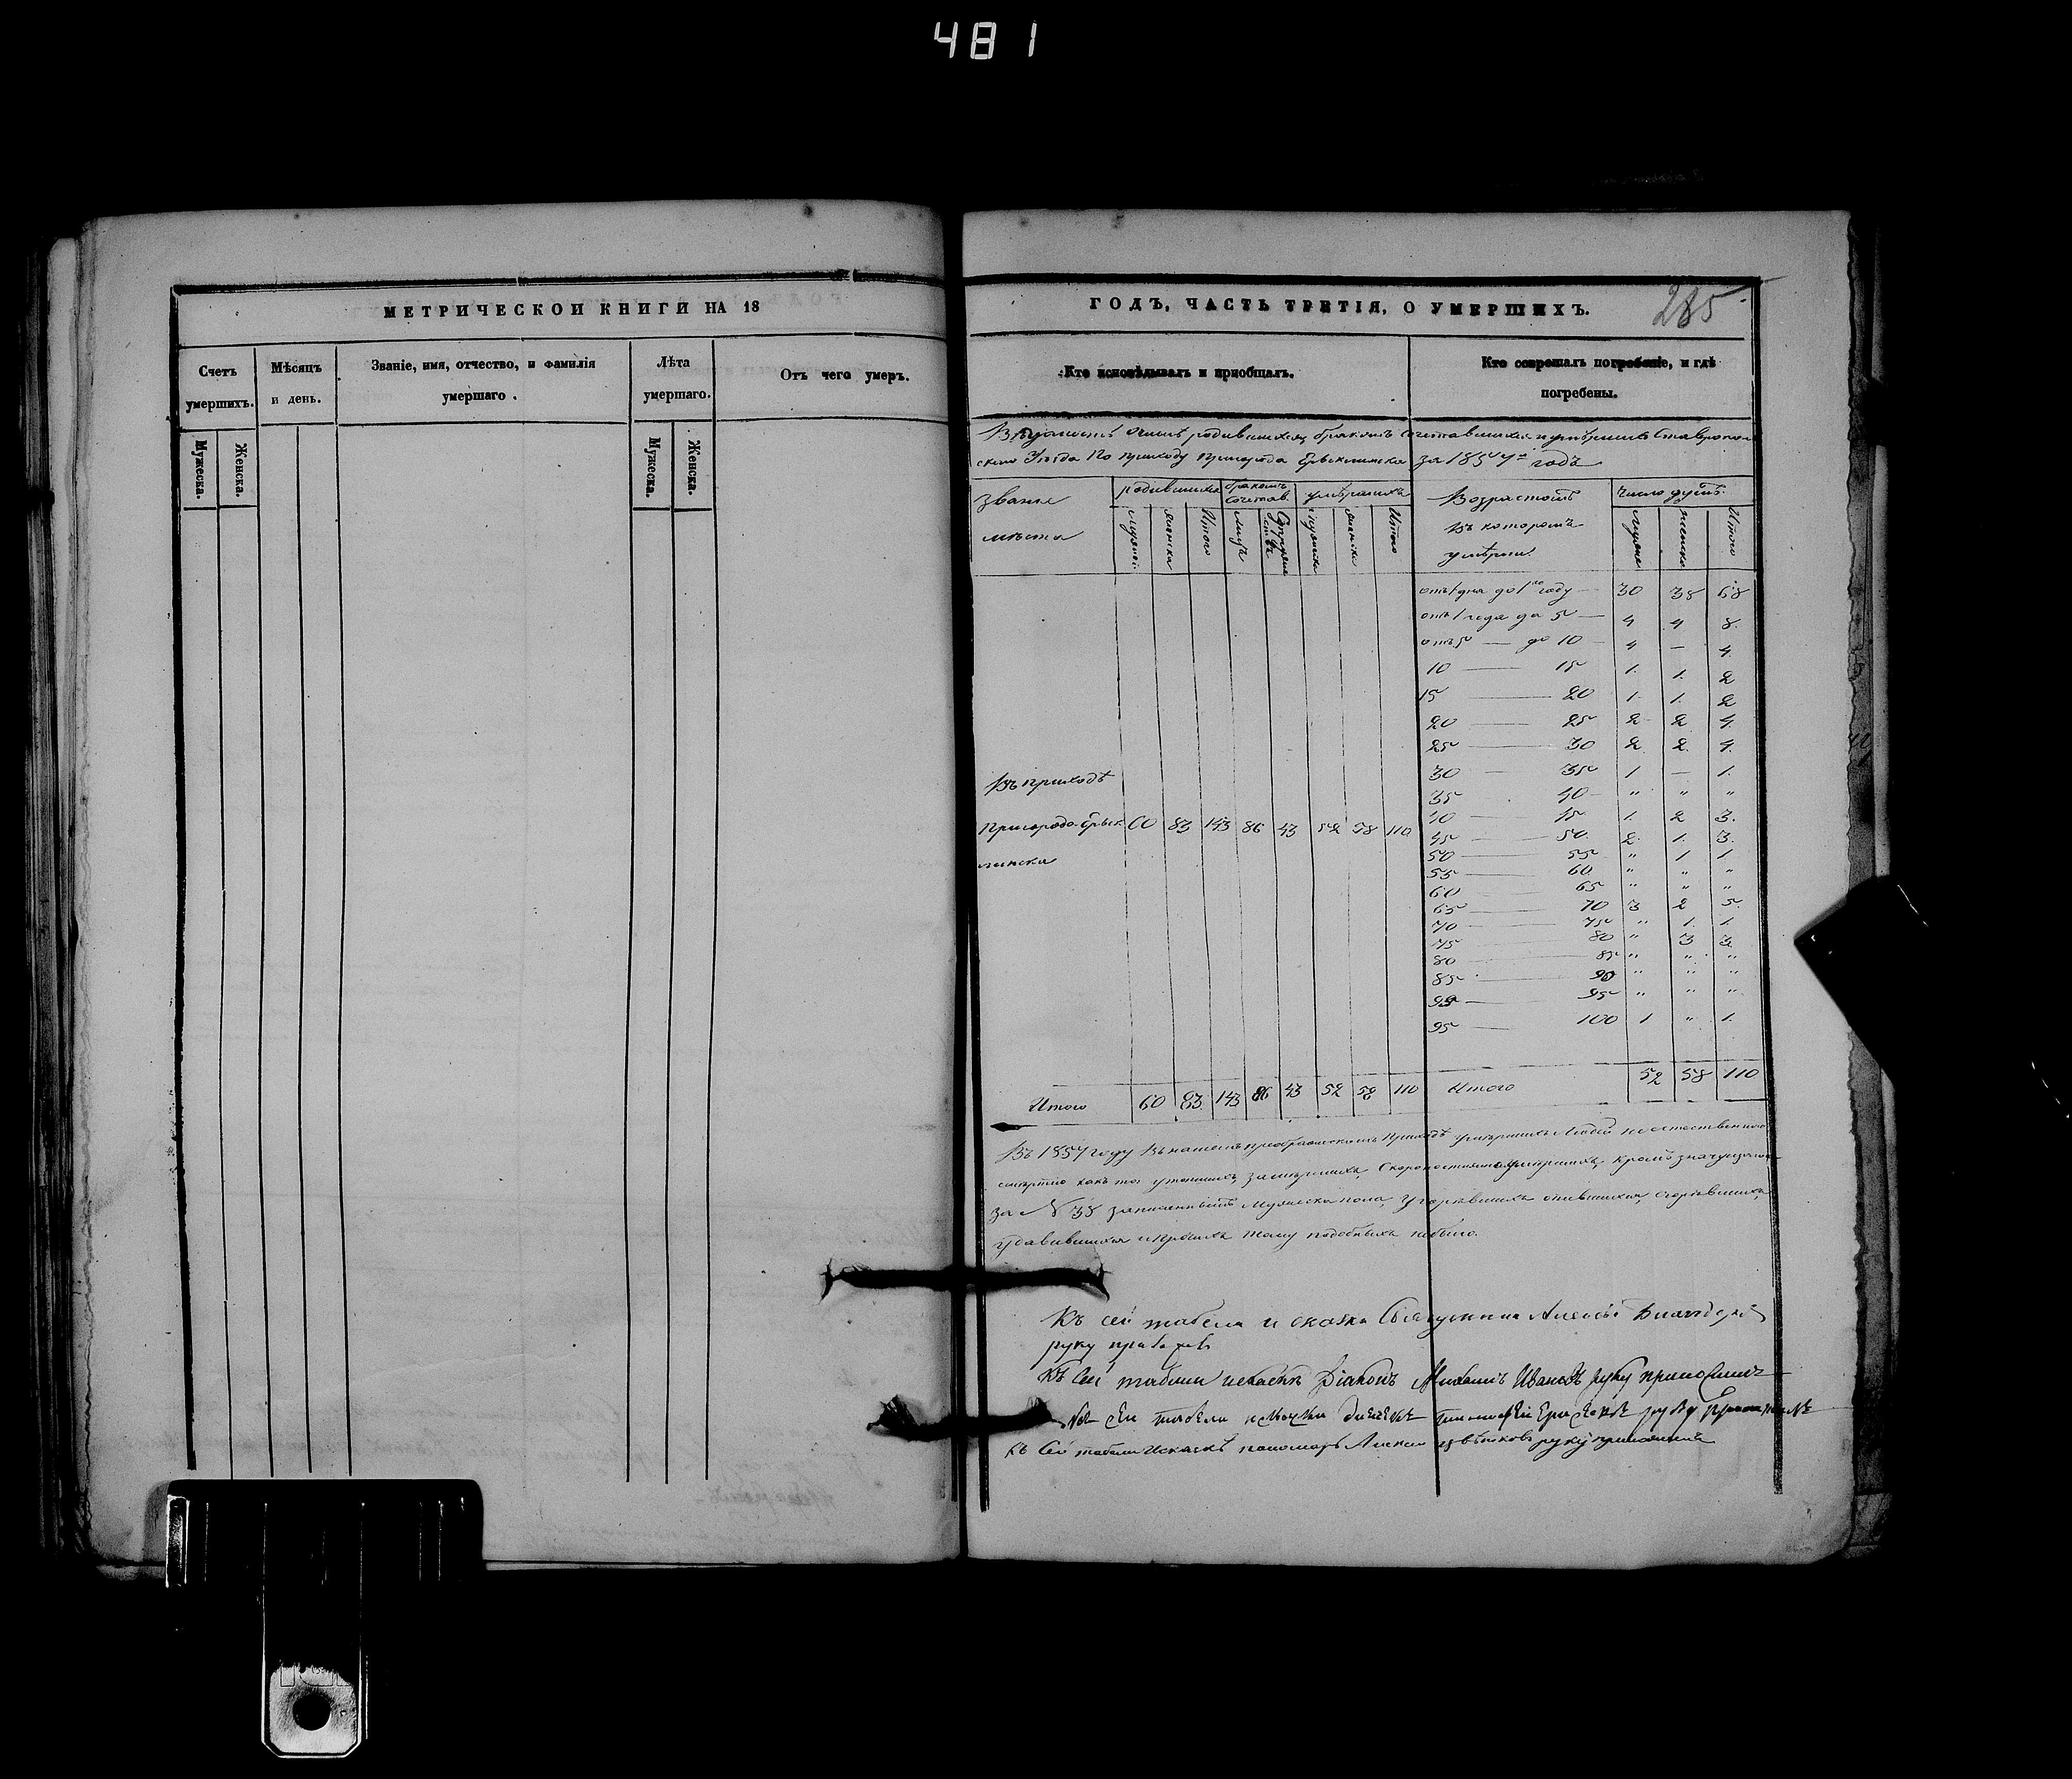 481
МЕТРИЧЕСКОЙ КНИГИ НА 18
Счетъ умершихъ.
Мѣсяцъ и день.
Званіе, имя, отчество, и фамилія умершаго.
Лѣта умершаго.
Отъ чего умеръ.
Мужеска. Женска.
Мужеска. Женска.
ГОДЪ, ЧАСТЬ ТРЕТІЯ, О УМЕРШИХЪ.
285
Кто исповѣдывалъ и пріобщалъ.
Кто совершалъ погребеніе, и гдѣ погребены.
родившихся бракомъ сочетавшихся и умершихъ
уѣзда по приходу пригорода Ерыклинска за 1854й годъ
Званіе мѣста
родившихся
бракомъ сочетав
умершихъ
Возрастъ въ которомъ умерли
Число душъ
женска Итого
женска Итого
женска Итого
отъ 1 дня до 1го году 30 38 68
отъ 1 года до 5 4 4 8
отъ 5 до 10 4 — 4
10 15 1 1 2
15 20 1 1 2
20 25 2 2 4
25 30 2 2 4
30 35 1 — 1
35 40 " " "
40 45 1 2 3
45 50 2 1 3
50 55 " 1 1
55 60 " " "
60 65 " " "
65 70 3 2 5
70 75 " 1 1
75 80 " 3 3
80 85 " " "
85 90 " " "
90 95 " " "
95 100 1 " 1
Въ приходѣ
Пригорода Ерык 60 83 143 86 43 52 58 110
линска
Итого 60 83 143 86 43 52 58 110
Итого 52 58 110
Въ 1854 году въ нашемъ приходѣ умершихъ людей неестественною
смертію какъ то утопшихъ, замерзшихъ, скоропостижно умершихъ, кромѣ значущагося
за № 38 мужеска пола, угорѣвшихъ опившихся, сгорѣвшихъ,
удавившихся и прочихъ тому подобныхъ небыло.
Къ сей табели и сказкѣ Священникъ Алексѣй
руку
Къ сей табели и сказкѣ Діаконъ Михаилъ Ивановъ руку приложилъ
сей табели дьячекъ руку
къ сей табели и сказкѣ пономарь руку приложилъ